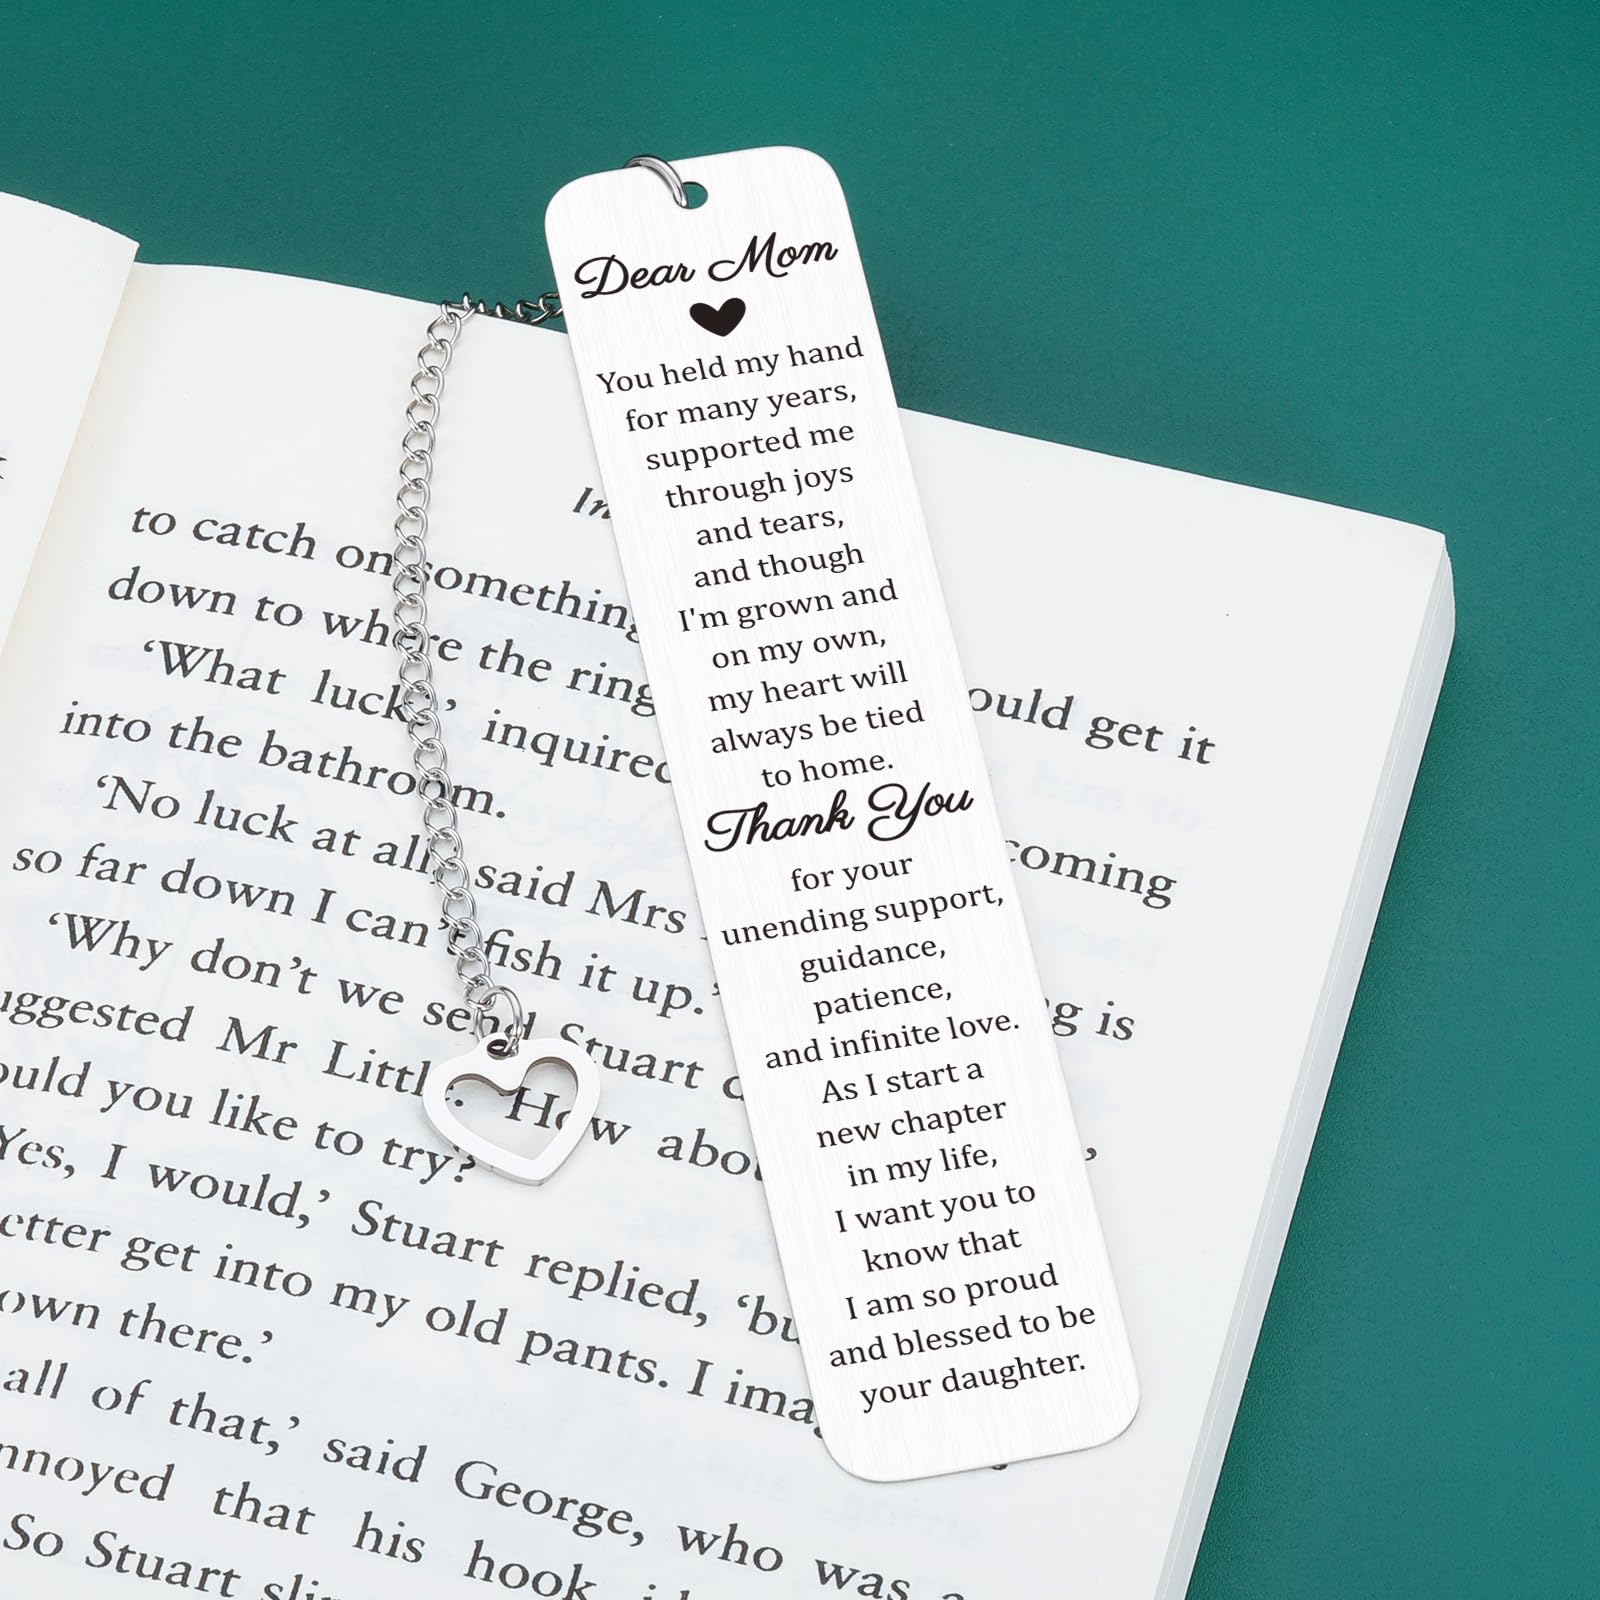 Dear Mom
You held my hand
for many years,
supported me
through joys
and tears,
and though
I'm grown and
on my own,
my heart will
always be tied
to home.
Thank You
for your
unending support,
guidance,
patience,
and infinite love.
As I start a
new chapter
in my life,
I want you to
know that
I am so proud
and blessed to be
your daughter.
to catch on something
down to where the ring ould get it
‘What luck?’ inquired
into the bathroom.
‘No luck at all,’ said Mrs coming
so far down I can’t fish it up.’
‘Why don’t we send Stuart g is
uggested Mr Little. ‘How abou ,
ould you like to try?’
Yes, I would,’ Stuart replied, ‘bu
etter get into my old pants. I imag
own there.’
all of that,’ said George, who was a
nnoyed that his hook
So Stuart slip